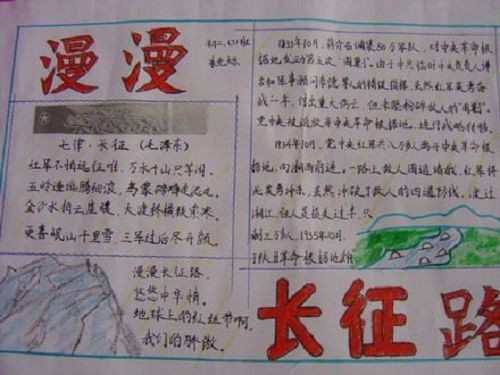 漫漫
七律·长征(毛泽东)
红军不怕远征难,万水千山只等闲。
五岭逶迤腾细浪,乌蒙磅礴走泥丸。
金沙水拍云崖暖,大渡桥横铁索寒。
更喜岷山千里雪,三军过后尽开颜。
漫漫长征路,
悠悠中华情。
地球上的红 啊,
我们的骄傲。
1933年10月,蒋介石调集50万军队,对中央革命根
据地发动第五次"围剿"。由于中共临时中央负责人博
古和军事顾问李德等人的错误指挥,虽然红军英勇奋
战一年,付出重大伤亡,但未能粉碎敌人的"围剿"。
党中央被迫放弃中央革命根据地,进行战略转移。
1934年10月,党中央红军共八万多人离中央革命根
据地,向湘南前进。一路上敌人围追堵截,红军将
士英勇冲杀,虽然冲破了敌人的四道防线,渡过
湘江,但人员损失过半,只
剩三万多人。1935年10月,
革命根据地
长征路